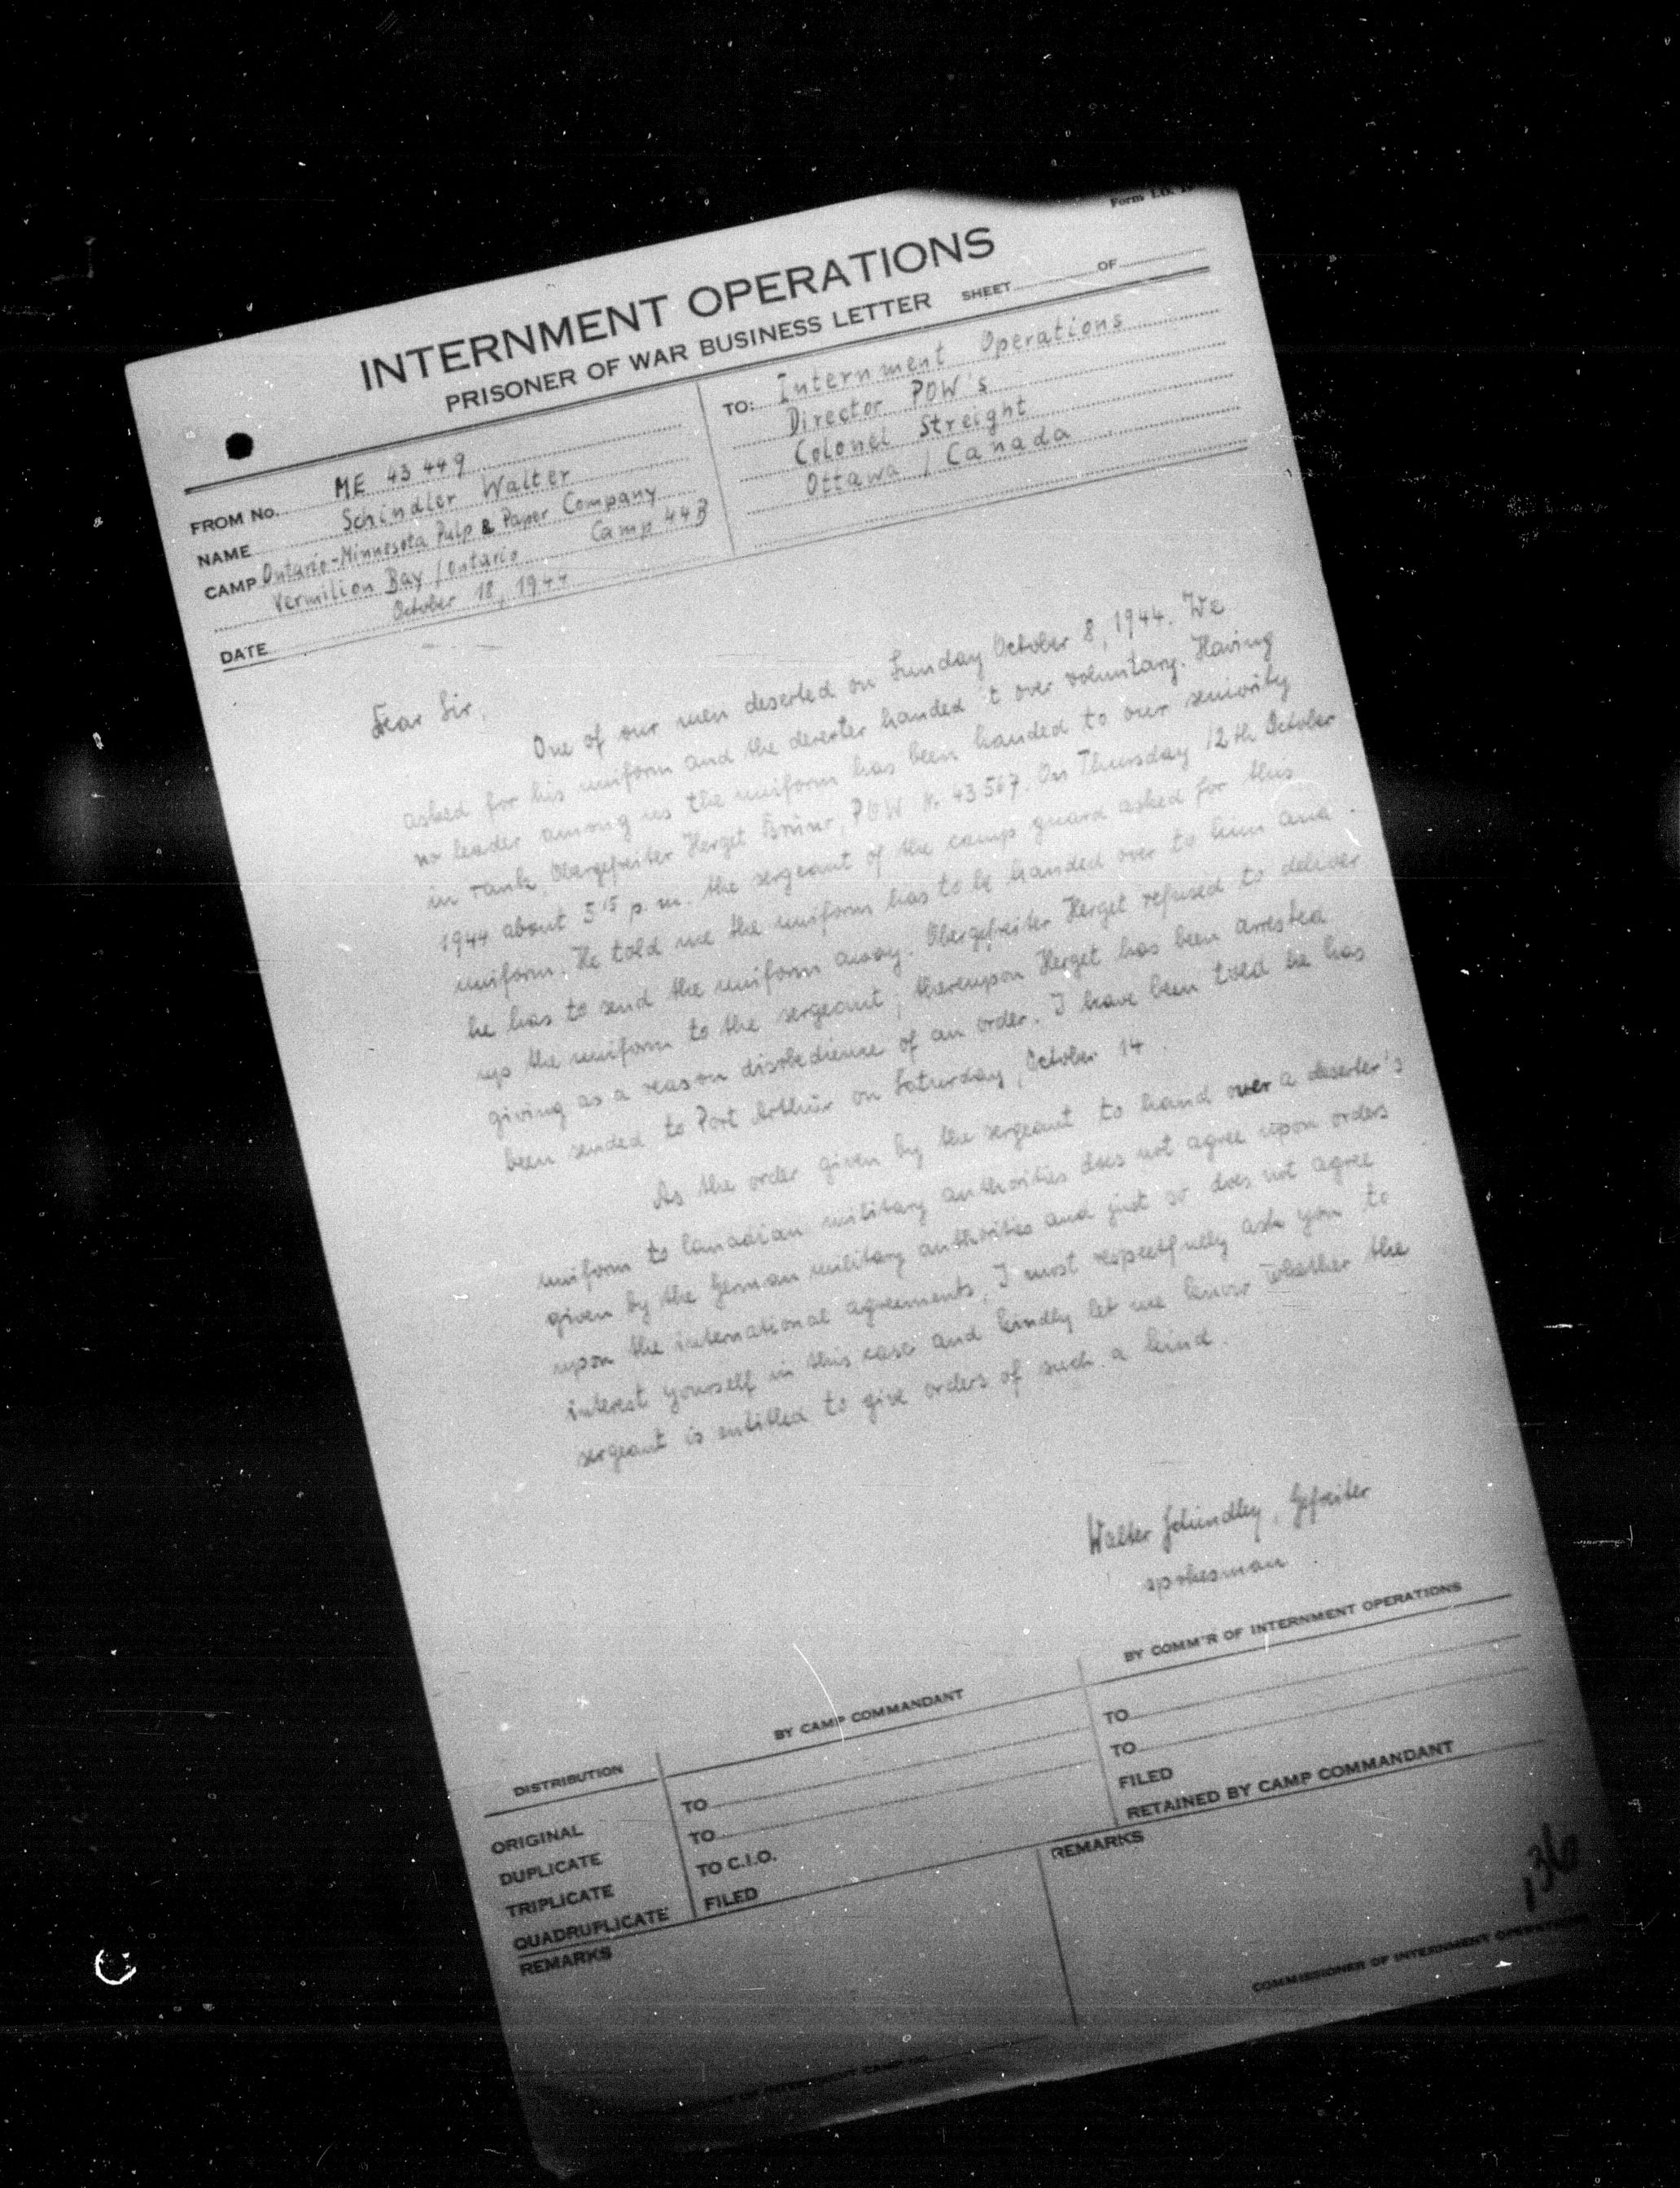 INTERNMENT OPERATIONS
PRISONER OF WAR BUSINESS LETTER
SHEET OF
FROM No. ME 43 449
NAME Schindler Walter
CAMP Ontario-Minnesota Pulp & Paper Company
Vermilion Bay / Ontario Camp 44B
DATE October 18, 1944
TO: Internment Operations
Director POW's
Colonel Streight
Ottawa / Canada
Dear Sir,
One of our men deserted on Sunday October 8, 1944. We
asked for his uniform and the deserter handed 't over voluntary. Having
no leader among us the uniform has been handed to our seniority
in rank, Obergefreiter Herget Bruno, POW Nr. 43567. On Thursday 12th October
1944 about 5 15 p.m. the sergeant of the camp guard asked for this
uniform. He told me the uniform has to be handed over to him and
he has to send the uniform away. Obergefreiter Herget refused to deliver
up the uniform to the sergeant; thereupon Herget has been arrested
giving as a reason disobedience of an order. I have been told he has
been sended to Port Arthur on Saturday, October 14.
As the order given by the sergeant to hand over a deserter's
uniform to Canadian military authorities does not agree upon orders
given by the German military authorities and just so does not agree
upon the international agreements, I most respectfully ask you to
interest yourself in this case and kindly let me know whether the
sergeant is entitled to give orders of such a kind.
Walter Schindler, Gefreiter
spokesman
DISTRIBUTION
BY CAMP COMMANDANT
BY COMM'R OF INTERNMENT OPERATIONS
ORIGINAL TO TO
DUPLICATE TO TO
TRIPLICATE TO C.I.O. FILED
QUADRUPLICATE FILED RETAINED BY CAMP COMMANDANT
REMARKS REMARKS
136
COMMISSIONER OF INTERNMENT OPERATIONS